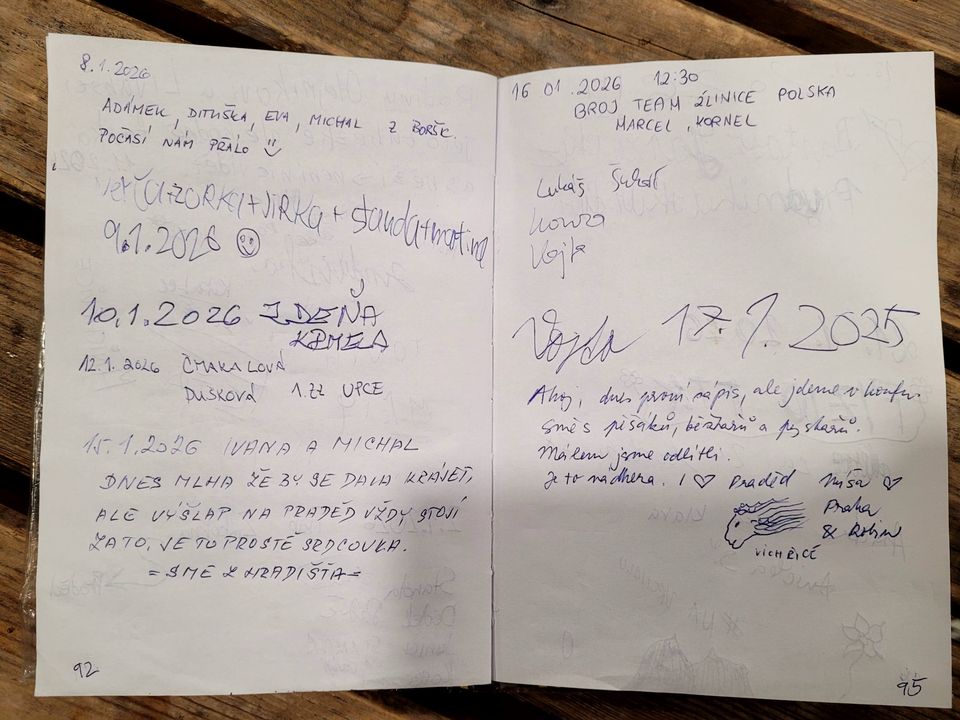 8.1.2026
ADÁMEK, DITUŠKA, EVA, MICHAL Z BORŠK.
POČASÍ NÁM PŘÁLO
+ZORKA+JIRKA+standa+martina
9.1.2026
10.1.2026 ZDEŇA
KRMELA
12.1.2026 ČMAKALOVÁ
DUSKOVÁ 1.ZZ UPCE
15.1.2026 IVANA A MICHAL
DNES MLHA ŽE BY SE DALA KRÁJET,
ALE VÝŠLAP NA PRADĚD VŽDY STOJÍ
ZATO, JE TO PROSTĚ SRDCOVKA.
=SME Z HRADIŠŤA=
92
16 01.2026 12:30
BROJ TEAM ŻLINICE POLSKA
MARCEL, KORNEL
Lukáš
Vojta
Vojda 17.1.2025
Ahoj, dnes první zápis, ale jdeme v
směs pěšáků, běžkařů a pejskařů.
Málem jsme odlítli.
Je to nádhera. I ♡ Praděd Míša ♡
Praha
&
VICHŘICE
95